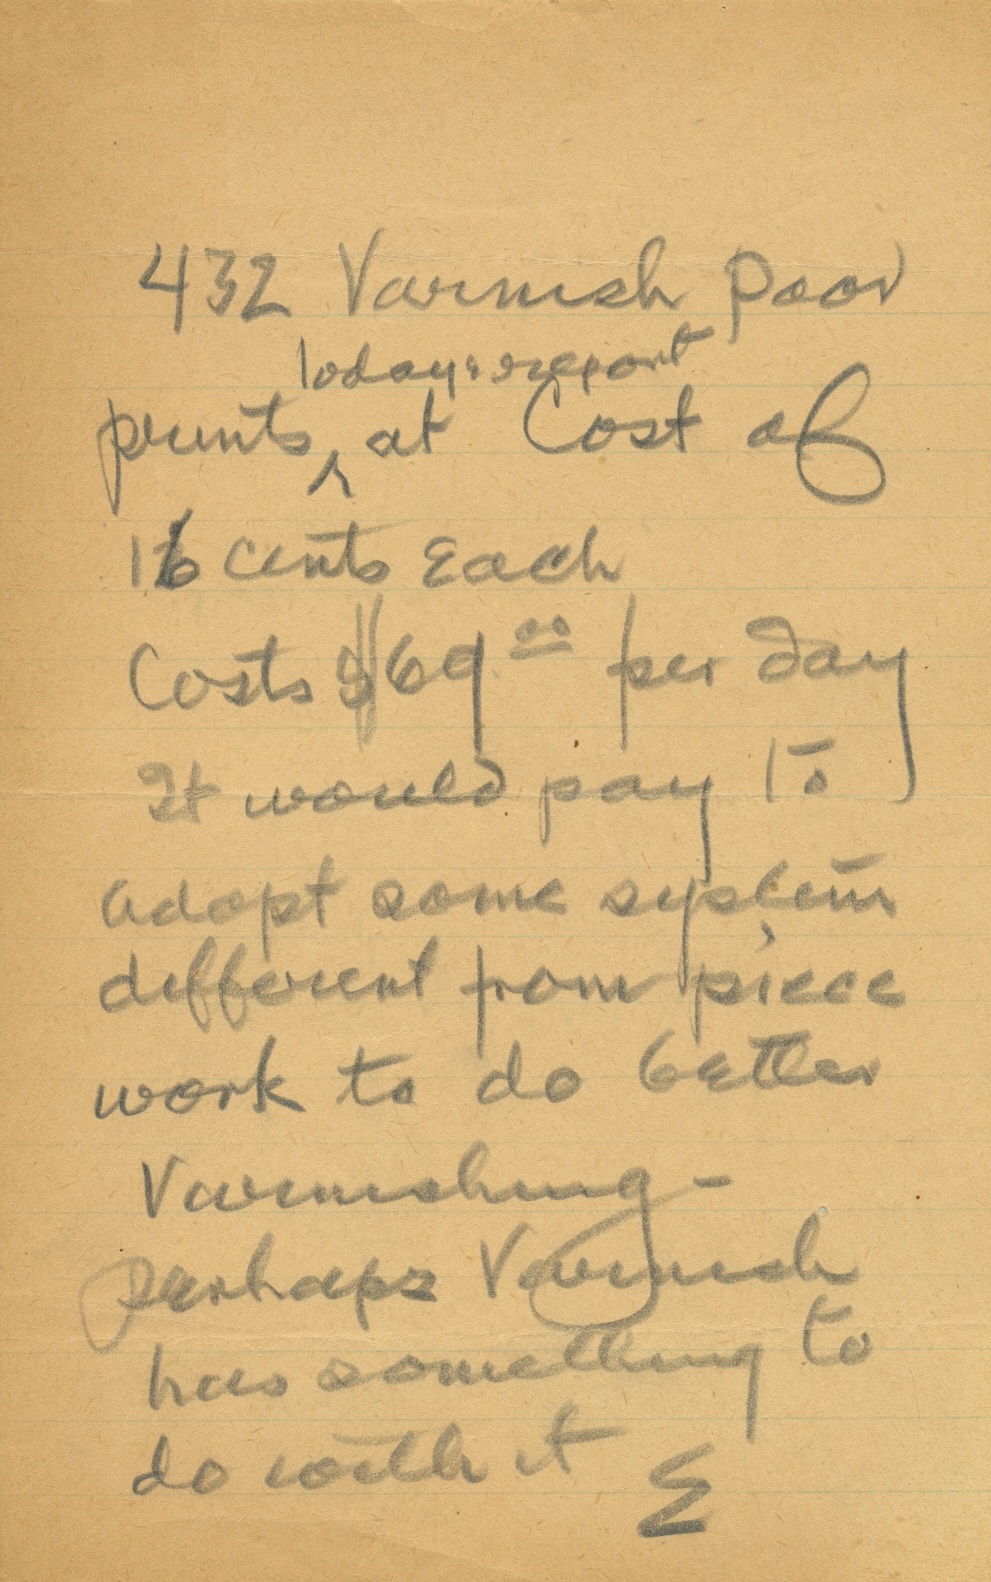 432 Varnish poor
todays report
prints ^ at Cost of
16 cents Each
Costs $69 00 per day
It would pay to
adopt some system
different from piece
work to do better
Varnishing -
perhaps Varnish
has something to
do with it E